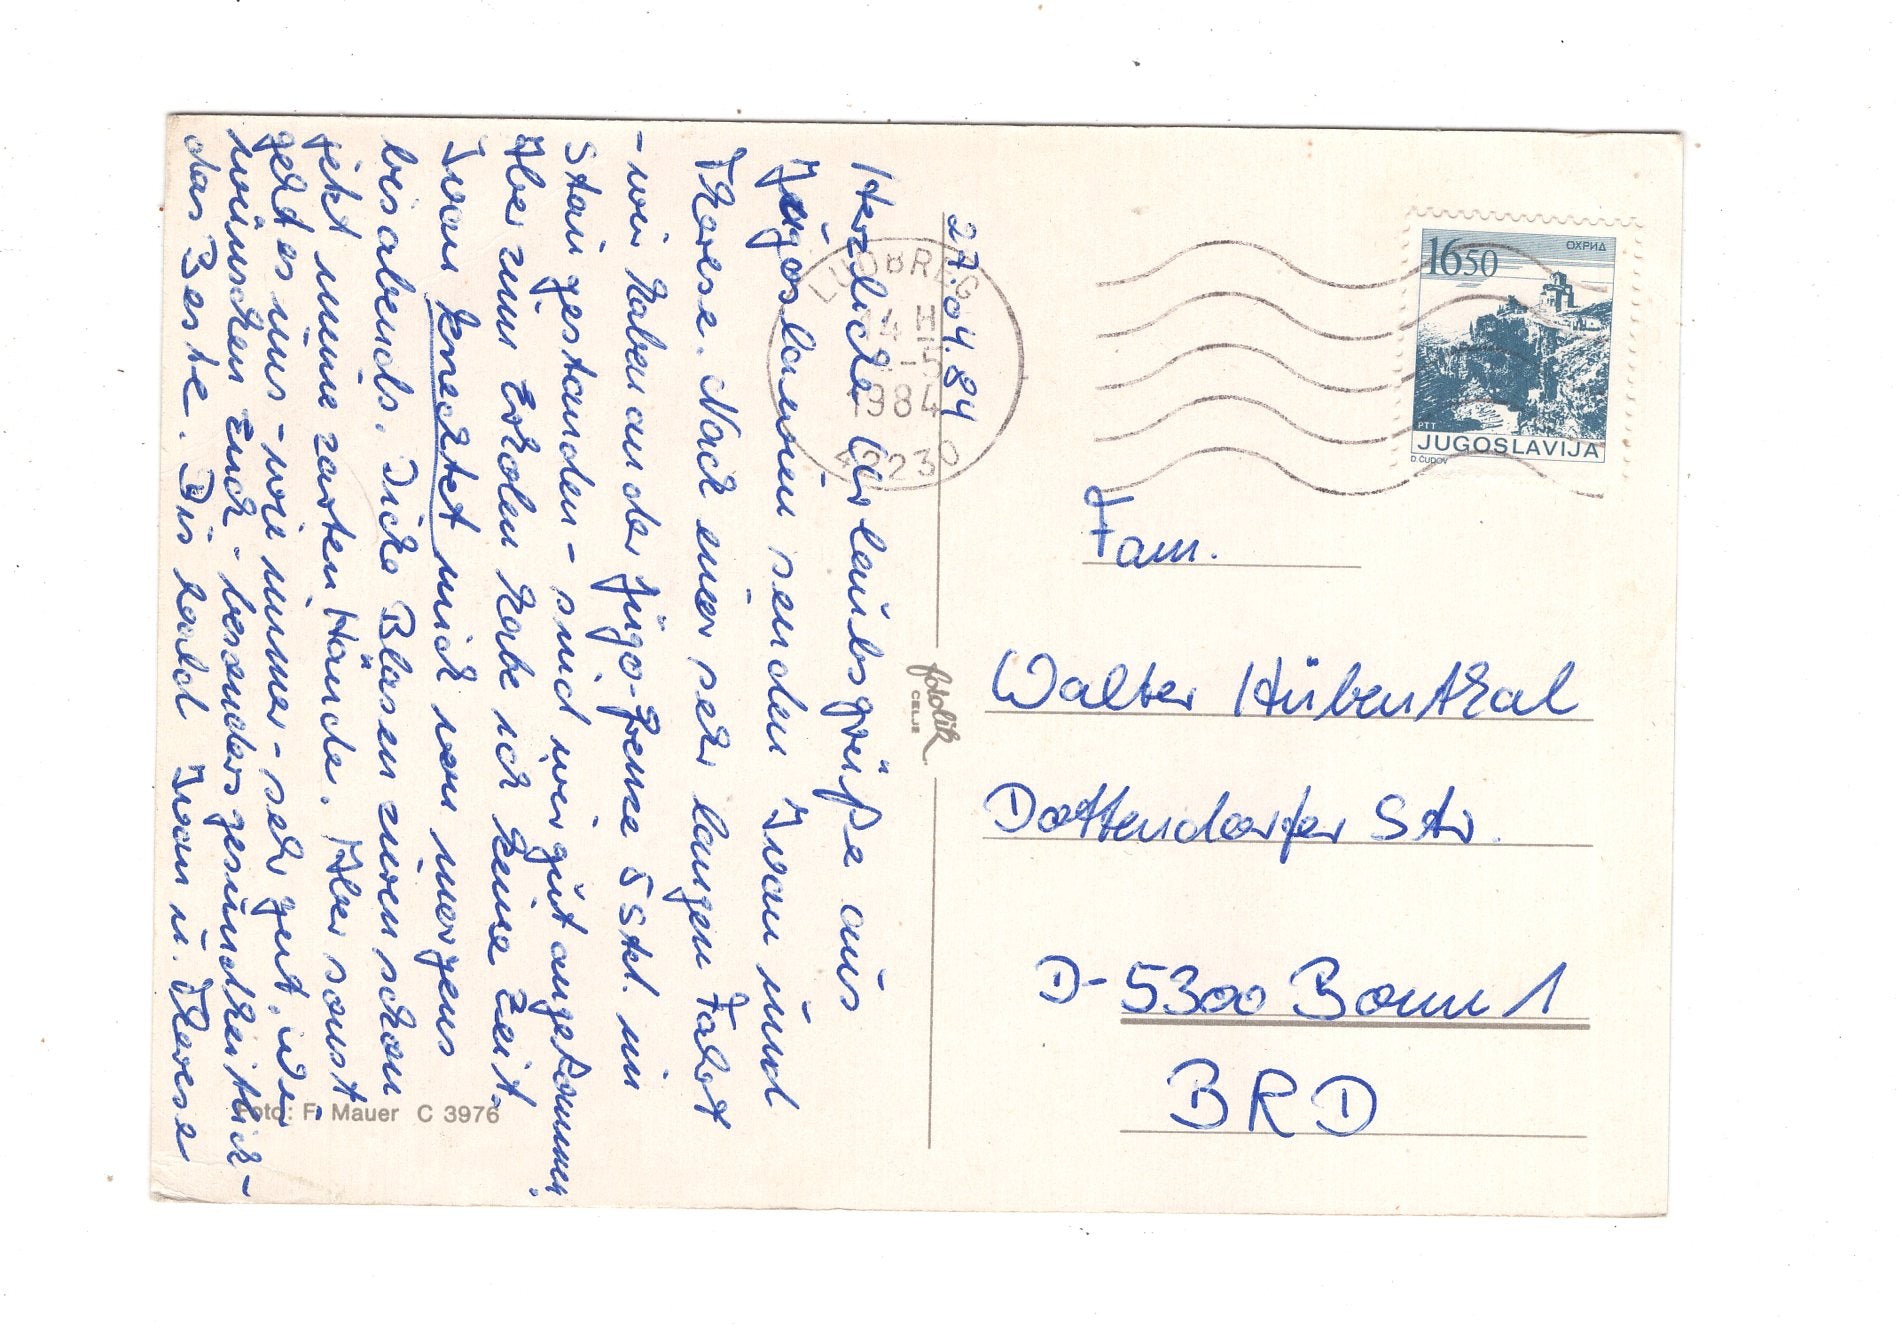 27.04.84
Herzliche Urlaubsgrüße aus
Jugoslawien senden Ivan und
Therese. Nach einer sehr langen Fahrt
- wir haben an der Jugo-Grenze 5 Std. im
Stau gestanden - sind wir gut angekommen.
Aber zum Erholen habe ich keine Zeit.
Ivan knechtet mich von morgens
bis abends. Dicke Blasen zieren schon
jetzt meine zarten Hände. Aber sonst
geht es uns - wie immer - sehr gut. Wir
wünschen Euch - besonders gesundheitlich -
das Beste. Bis bald Ivan u. Therese
Foto: F. Mauer C 3976
fotolik
CELJE
LUDBREG
14 H
-5
1984
42230
1650
ОХРИД
PTT
JUGOSLAVIJA
D. ČUDOV
Fam.
Walter Hübenthal
Dottendorfer Str.
D-5300 Bonn 1
BRD